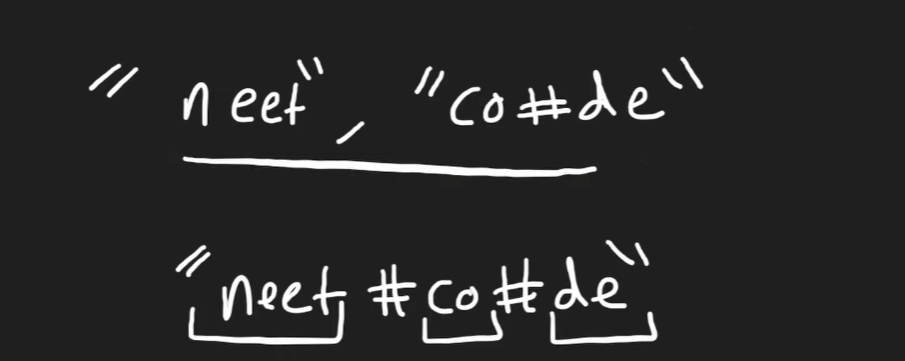 "neet", "co#de"
"neet#co#de"